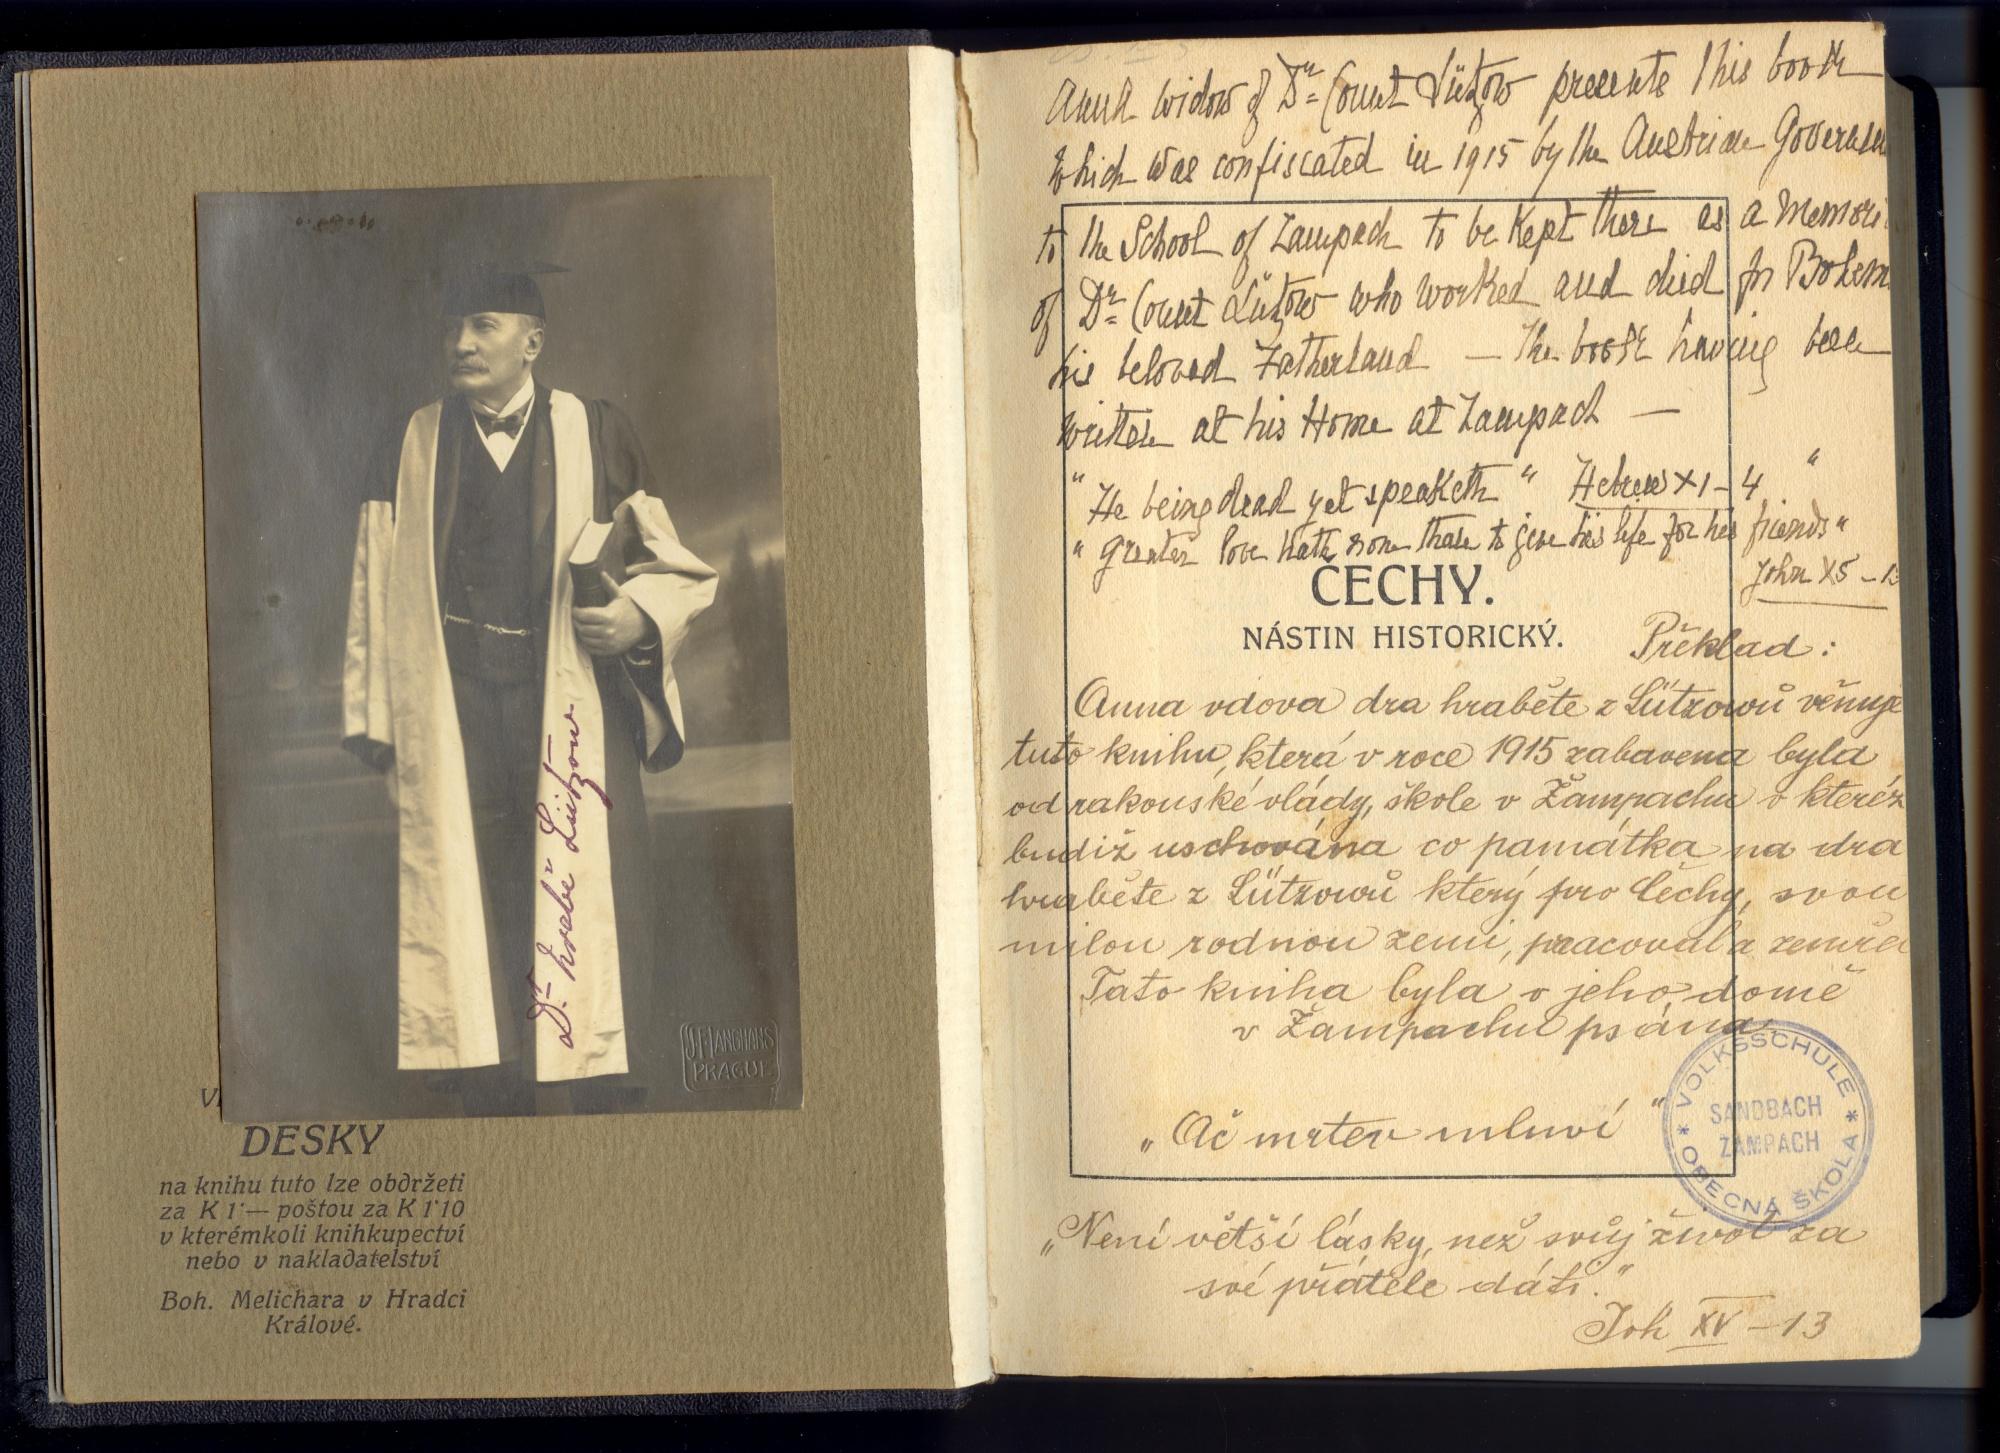 Dr. hrabě Lützow
J. F. LANGHANS
PRAGUE
DESKY
na knihu tuto lze obdržeti
za K 1·— poštou za K 1·10
v kterémkoli knihkupectví
nebo v nakladatelství
Boh. Melichara v Hradci
Králové.
Anna widow of Dr. Count Lützow presents this book
which was confiscated in 1915 by the Austrian
to the School of Zampach to be kept there as a
of Dr. Count Lützow who worked and died for
his beloved Fatherland — The book having been
written at his Home at Zampach —
"He being dead yet speaketh" Hebrew XI - 4
"Greater love hath none than to give his life for his friends"
John X5 - 13
ČECHY.
NÁSTIN HISTORICKÝ.
Překlad:
Anna vdova dra hraběte z Lützowů věnuje
tuto knihu, která v roce 1915 zabavena byla
od rakouské vlády, škole v Žampachu v kteréž
budiž uschována co památka na dra
hraběte z Lützowů který pro Čechy, svou
milou rodnou zemi, pracoval a
Tato kniha byla v jeho domě
v Žampachu psána.
"Ač mrtev mluví"
* VOLKSSCHULE *
SANDBACH
ŽAMPACH
OBECNÁ ŠKOLA
"Není větší lásky, než svůj život za
své přátele dáti."
Joh XV - 13